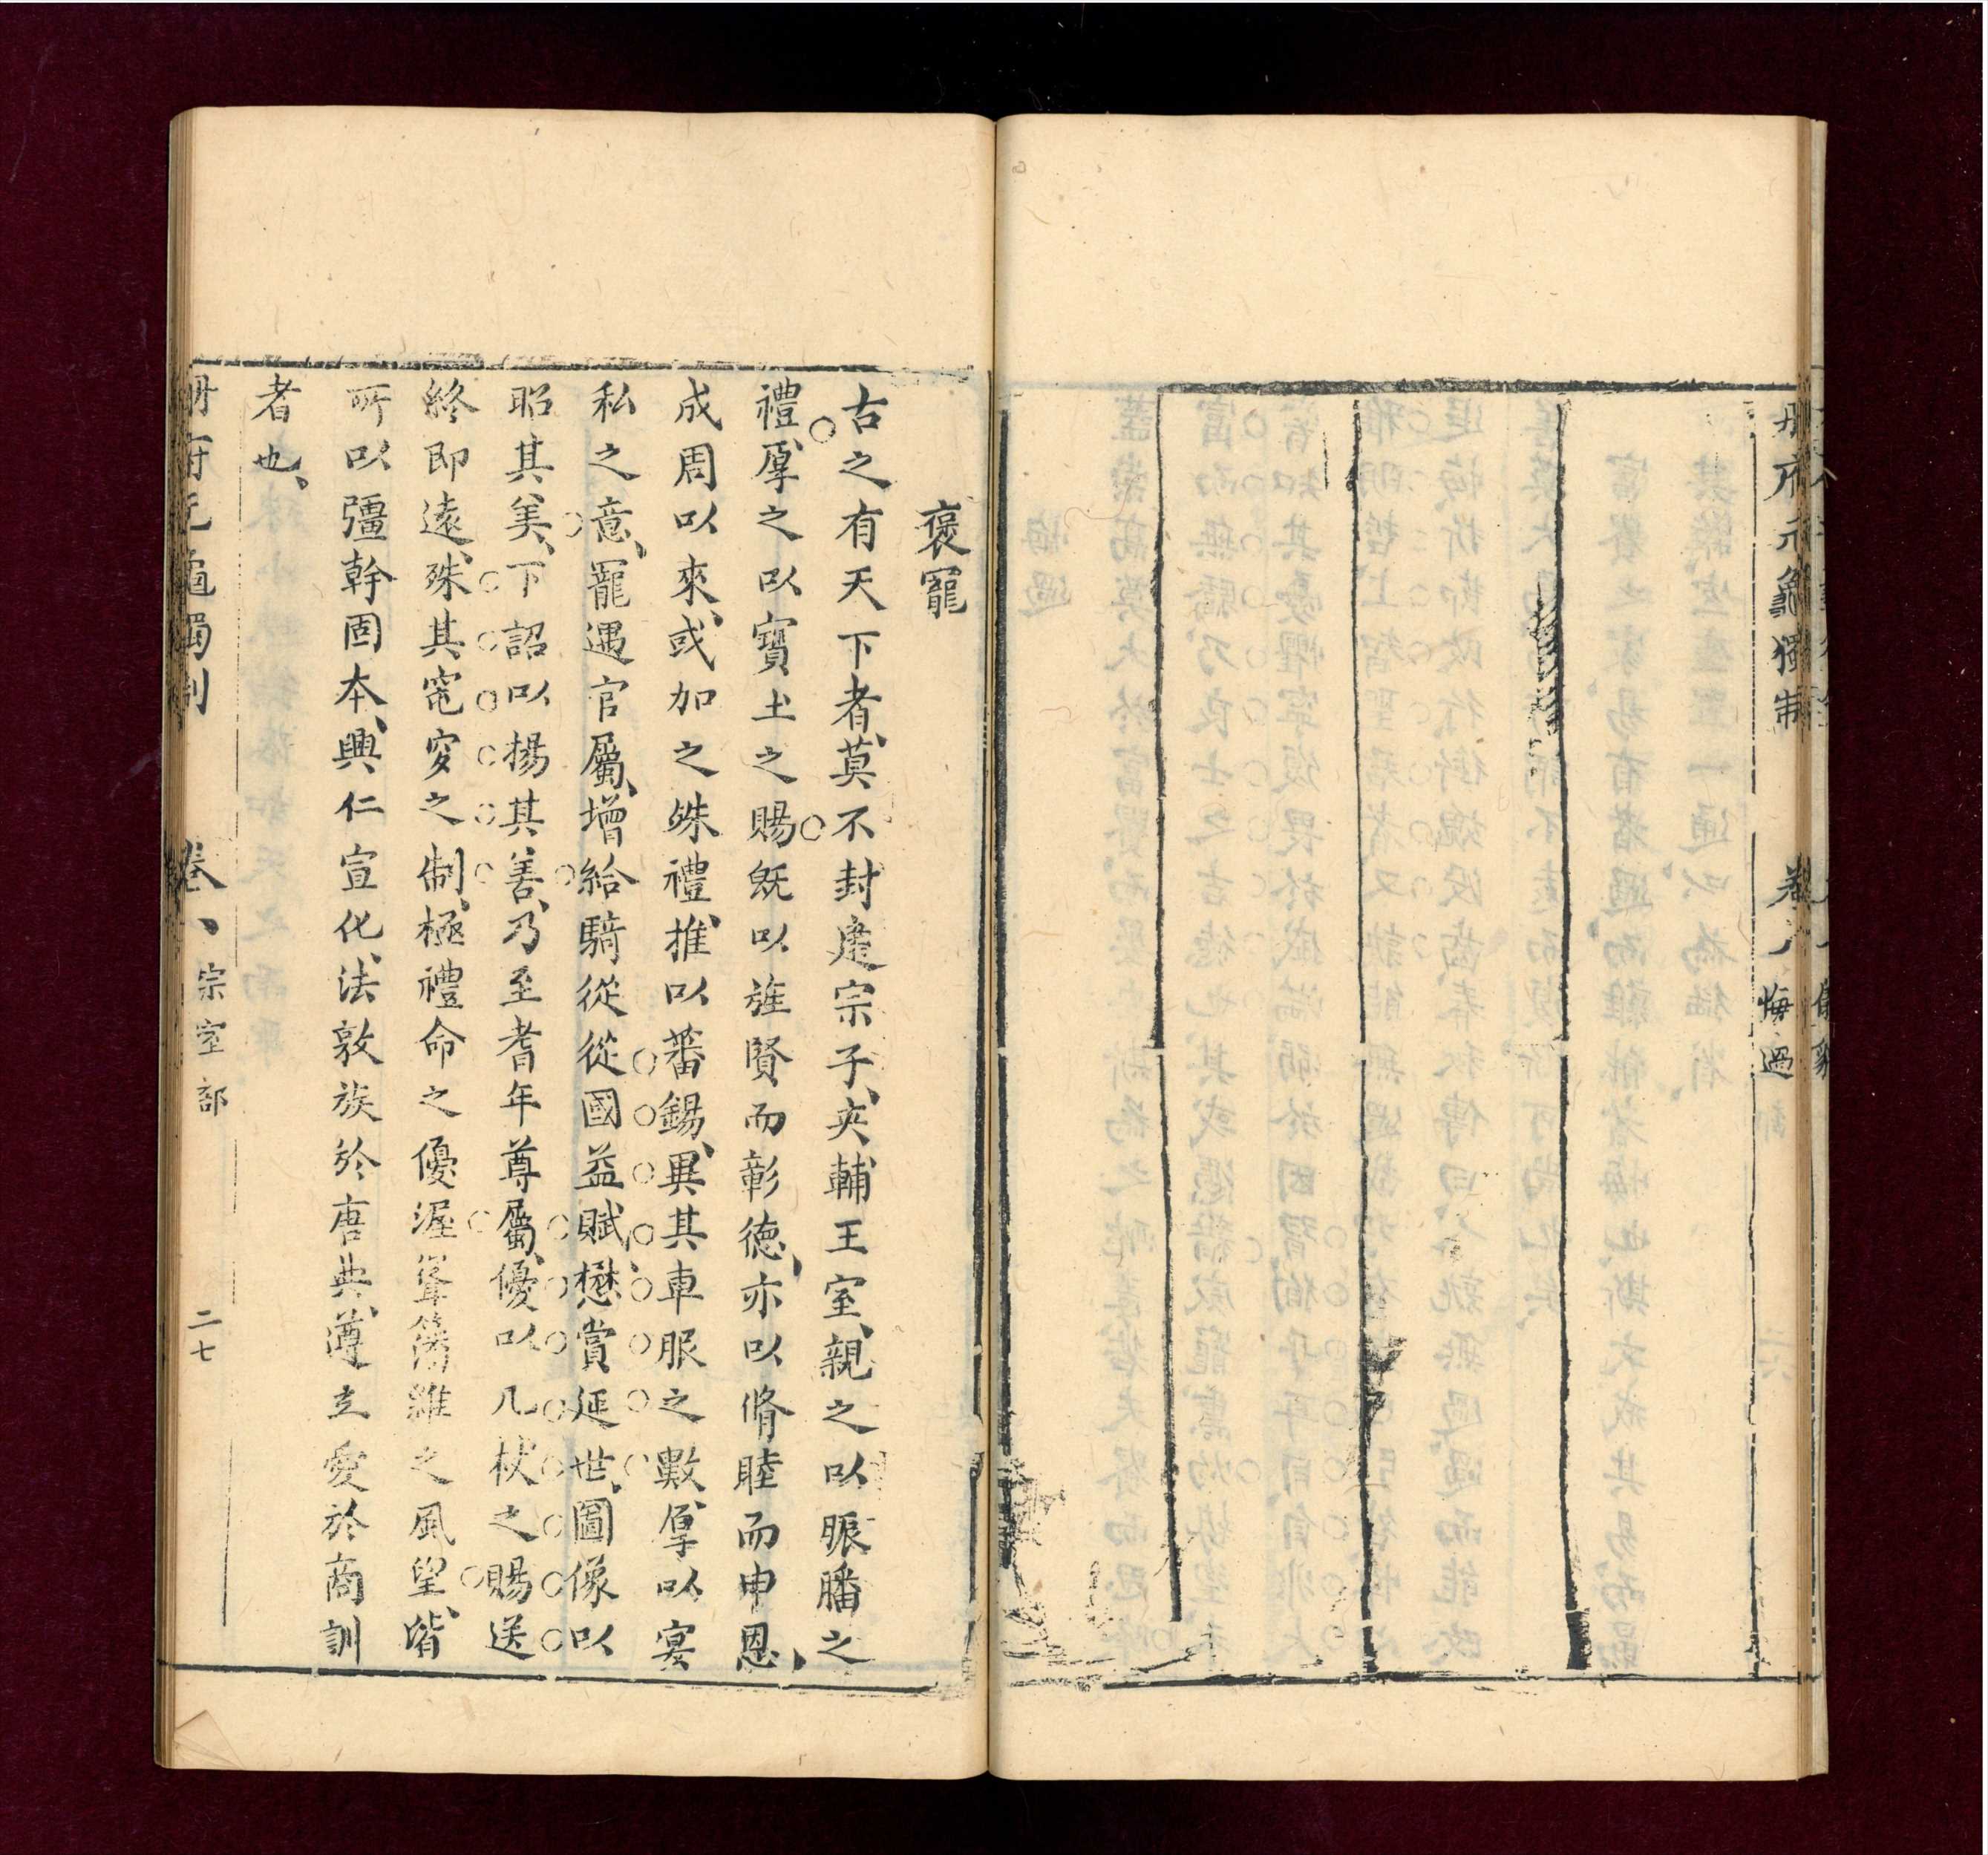 册府元龜獨制 卷八 悔過
褒寵
古之有天下者、莫不封建宗子、夾輔王室、親之以脤膰之
禮、厚之以寶玉之賜、旣以旌賢而彰德、亦以脩睦而申恩、
成周以來、或加之殊禮、推以蕃錫、異其車服之數、厚以宴
私之意、寵遇官屬、增給騎從、從國益賦、懋賞延世、圖像以
昭其美、下詔以揚其善、乃至耆年尊屬、優以几杖之賜、送
終卽遠、殊其窀穸之制、極禮命之優渥、峯籓維之風望、皆
所以彊幹固本、興仁宣化、法敦族於唐典、遵立愛於商訓
者也、
册府元龜獨制 卷八 宗室部 二七